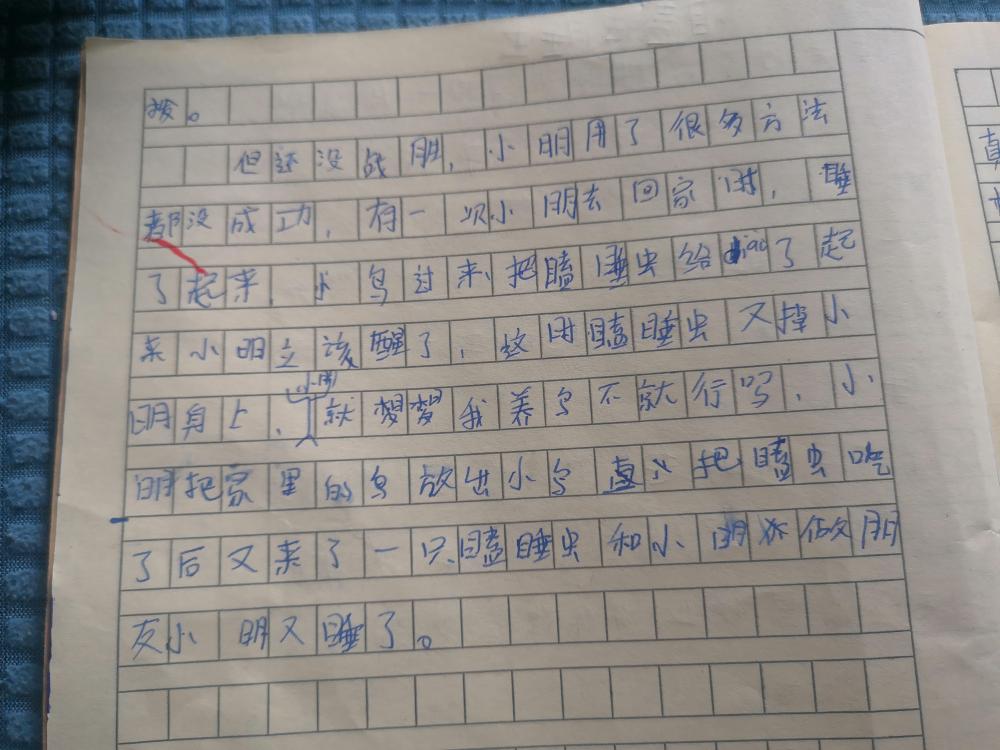 拨。
但还没战胜，小明用了很多方法
都没成功，有一次小明去回家时，睡
了起来，小鸟过来，把瞌睡虫给diao了起
来小明立该醒了，这时瞌睡虫又掉小
小明
明身上，就想想我养鸟不就行吗，小
明把家里的鸟放出小鸟直义把瞌虫吃
了后又来了一只瞌睡虫和小明做朋
友小明又睡了。
真